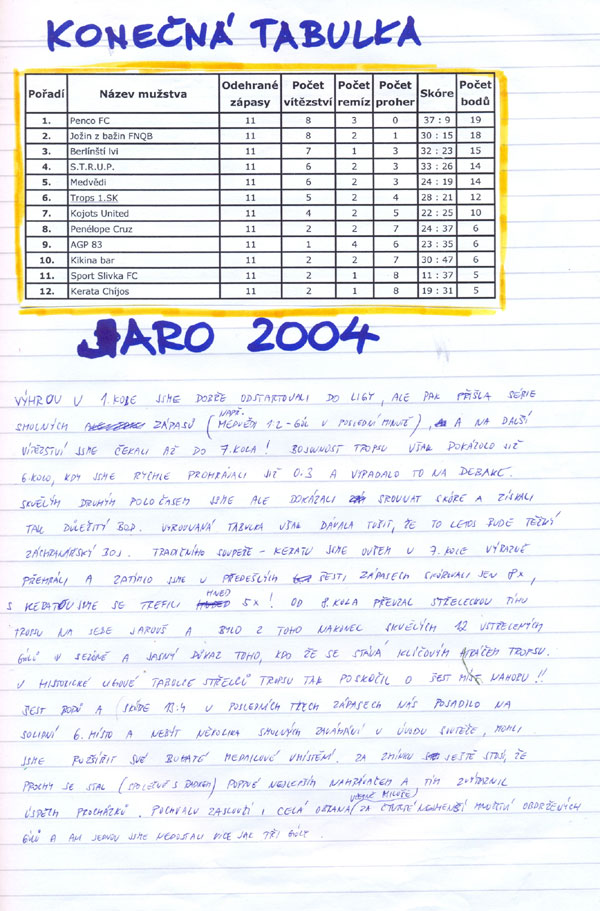 KONEČNÁ TABULKA
Pořadí Název mužstva Odehrané zápasy Počet vítězství Počet remíz Počet proher Skóre Počet bodů
1. Penco FC 11 8 3 0 37 : 9 19
2. Jožin z bažin FNQB 11 8 2 1 30 : 15 18
3. Berlínští lvi 11 7 1 3 32 : 23 15
4. S.T.R.U.P. 11 6 2 3 33 : 26 14
5. Medvědi 11 6 2 3 24 : 19 14
6. Trops 1.SK 11 5 2 4 28 : 21 12
7. Kojots United 11 4 2 5 22 : 25 10
8. Penélope Cruz 11 2 2 7 24 : 37 6
9. AGP 83 11 1 4 6 23 : 35 6
10. Kikina bar 11 2 2 7 30 : 47 6
11. Sport Slivka FC 11 2 1 8 11 : 37 5
12. Kerata Chíjos 11 2 1 8 19 : 31 5
JARO 2004
VÝHROU V 1. KOLE JSME DOBŘE ODSTARTOVALI DO LIGY, ALE PAK PŘIŠLA SÉRIE
SMOLNÝCH ZÁPASŮ (NAPŘ. MEDVĚDI 1:2 - GÓL V POSLEDNÍ MINUTĚ), A NA DALŠÍ
VÍTĚZSTVÍ JSME ČEKALI AŽ DO 7. KOLA! BOJOVNOST TROPSU VŠAK DOKÁZALO JIŽ
6. KOLO, KDY JSME RYCHLE PROHRÁVALI JIŽ 0:3 A VYPADALO TO NA DEBAKL.
SKVĚLÝM DRUHÝM POLOČASEM JSME ALE DOKÁZALI SROVNAT SKÓRE A ZÍSKALI
TAK DŮLEŽITÝ BOD. VYROVNANÁ TABULKA VŠAK DÁVALA TUŠIT, ŽE TO LETOS BUDE TĚŽKÝ
ZÁCHRANÁŘSKÝ BOJ. TRADIČNÍHO SOUPEŘE - KERATU JSME OVŠEM V 7. KOLE VÝRAZNĚ
PŘEHRÁLI A ZATÍMCO JSME V PŘEDEŠLÝCH ŠESTI ZÁPASECH SKÓROVALI JEN 8x,
S KERATOU JSME SE TREFILI HNED 5x! OD 8. KOLA PŘEVZAL STŘELECKOU TÍHU
TROPSU NA SEBE JAROUŠ A BYLO Z TOHO NAKONEC SKVĚLÝCH 12 VSTŘELENÝCH
GÓLŮ V SEZÓNĚ A JASNÝ DŮKAZ TOHO, KDO ŽE SE STÁVÁ KLÍČOVÝM HRÁČEM TROPSU.
V HISTORICKÉ LIGOVÉ TABULCE STŘELCŮ TROPSU TAK POSKOČIL O ŠEST MÍST NAHORU!!
ŠEST BODŮ A SKÓRE 13:4 V POSLEDNÍCH TŘECH ZÁPASECH NÁS POSADILO NA
SOLIDNÍ 6. MÍSTO A NEBÝT NĚKOLIKA SMOLNÝCH ZAVÁHÁNÍ V ÚVODU SOUTĚŽE, MOHLI
JSME ROZŠÍŘIT SVÉ BOHATÉ MEDAILOVÉ UMÍSTĚNÍ. ZA ZMÍNKU JEŠTĚ STOJÍ, ŽE
PROCHY SE STAL (SPOLEČNĚ S RADKEM) POPRVÉ NEJLEPŠÍM NAHRÁVAČEM A TÍM ZVÝRAZNIL
ÚSPĚCH PROCHÁZKŮ. POCHVALU ZASLOUŽÍ I CELÁ OBRANA (VČETNĚ MILOŠE) ZA ČTVRTÉ NEJMENŠÍ MNOŽSTVÍ OBDRŽENÝCH
GÓLŮ A ANI JEDNOU JSME NEDOSTALI VÍCE JAK TŘI GÓLY.